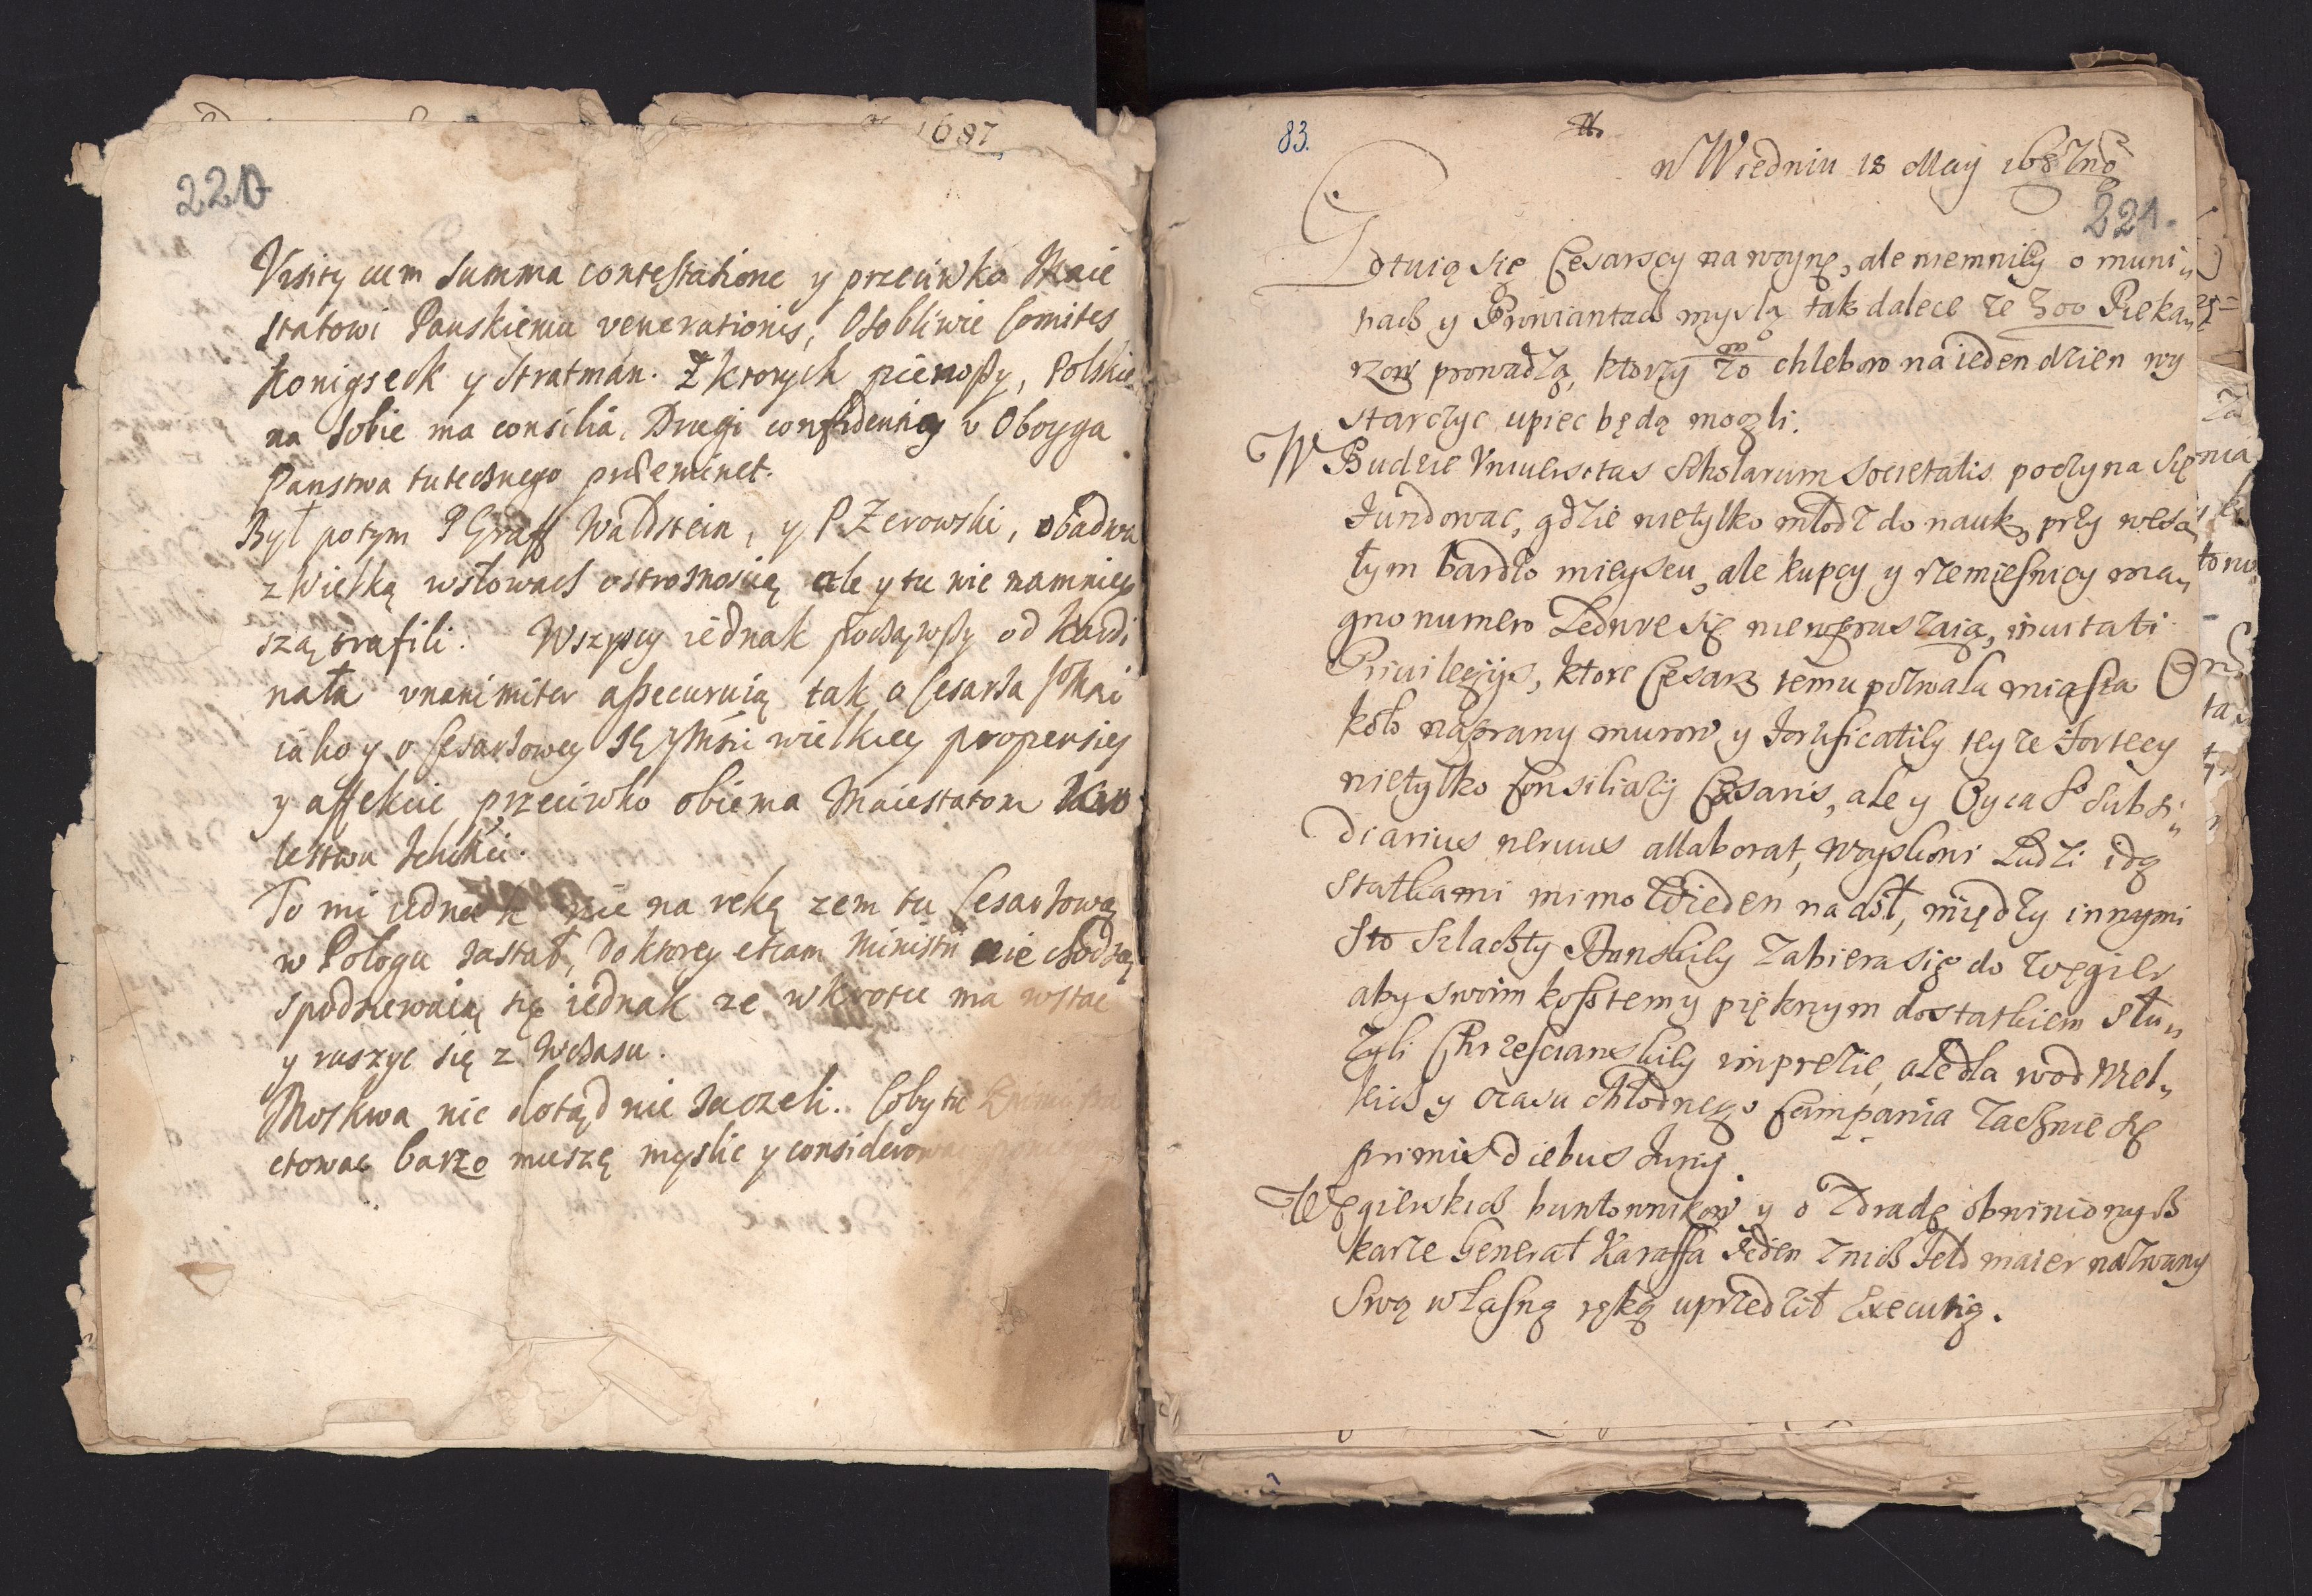 1687
220
Visity cum summa contestatione y przeciwko Maie
statowi Pauskiemu venerationis, Osobliwie Comites
Konigseck y Stratman. Z ktorych pierwszy, Polskie
na sobie ma consilia. Drugi confidentię v Oboyga
Panstwa tutecznego præeminet.
Był potym P Graff Waldstein, y P Zerowski, obadwa
z wielką wsłowach ostroznoscią ale y tu nie namniey
szą trafili. Wszyscy iednak począwszy od Kardi
nała vnanimiter assecuruią tak o Cesarza
iako y o Cesarzowey wielkiey propensiey
y affekcie przeciwko obiema Maiestatom Kro
lestwa
To mi iednak nie na rekę zem tu Cesarzową
w Pologu zastał, Do ktorey etiam Ministri nie chodzą
spodziewaią się iednak ze wkrotce ma wstac
y ruszyc się z Wczasu.
Moskwa nic dotąd nie zaczeli. Coby tu
ctowac barzo muszę myslic y considerowac
83.
w Wiedniu 18 Maij 1687no
221.
Gotuią się Cesarscy na woynę, ale niemniey o muni„
nach y Prowiantach myslą tak dalece ze 300 Pieka„
rzow prowadzą, ktorzy 20 chlebow na ieden dzien wy
starczyc upiec będą mogli.
W Budzie Vniuersitas Scholarum Societatis poczyna się
fundowac, gdzie nietylko młodz do nauk, przy weso„
łym bardzo mieyscu, ale kupcy y rzemiesnicy ma„
gno numero Zedwre się niewpraszaią, inuitati
Priuilegijs, ktore Cesarz temu pozwala miastu O
koło naprawy murow y fortificatiey teyze fortecy
nietylko Consiliarij Cæsaris, ale y Oyca S° subsi„
diarius neruus allaborat, Woyskowi Ludzi idą
statkami mimo Wieden na dół, między innymi
Sto Szlachty Danskiey zabiera się do Węgier
aby swoim kosztem y pięknym dostatkiem słu„
zyli Chrzescianskiey imprezie, ale dla wod Wiel„
kich y czasu chłodnego Campania zacznie się
primis diebus Junij.
Węgierskich buntownikow y o Zdradę obwinionych
karze Generał Karaffa Jeden znich Feldmaier nazwany
Swą własną ręką uprzedził Executią.